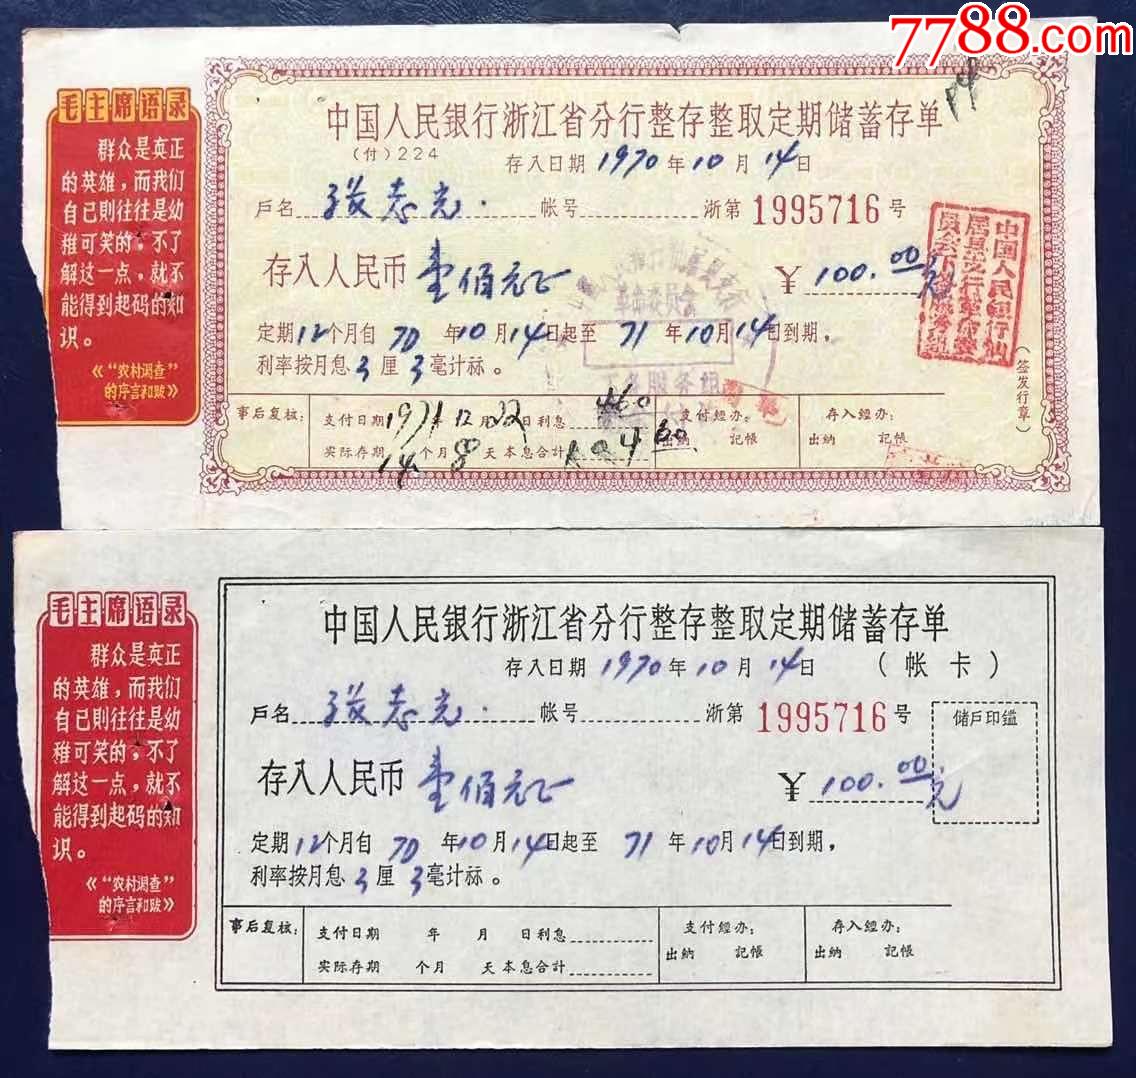 7788.com
毛主席语录
群众是真正
的英雄，而我们
自己则往往是幼
稚可笑的，不了
解这一点，就不
能得到起码的知
识。
《“农村调查”
的序言和跋》
中国人民银行浙江省分行整存整取定期储蓄存单
(付)224
存入日期 1970 年 10 月 14 日
户名 张志光 帐号 浙第 1995716 号
存入人民币 壹佰元正 ¥ 100.00元
定期 12 个月自 70 年 10 月 14 日起至 71 年 10 月 14 日到期，
利率按月息 3 厘 3 毫计标。
(签发行章)
事后复核: 支付日期 1971 年 12 月 22 日利息 4.60 支付经办: 存入经办:
实际存期 14 个月 8 天本息合计 104.60 出纳 記帳 出纳 記帳
革命委员会
毛主席语录
群众是真正
的英雄，而我们
自己则往往是幼
稚可笑的，不了
解这一点，就不
能得到起码的知
识。
《“农村调查”
的序言和跋》
中国人民银行浙江省分行整存整取定期储蓄存单
存入日期 1970 年 10 月 14 日 (帐卡)
户名 张志光 帐号 浙第 1995716 号
储户印鑑
存入人民币 壹佰元正 ¥ 100.00元
定期 12 个月自 70 年 10 月 14 日起至 71 年 10 月 14 日到期，
利率按月息 3 厘 3 毫计标。
事后复核: 支付日期 年 月 日利息 支付經办: 存入經办:
实际存期 个月 天本息合计 出纳 記帳 出纳 記帳